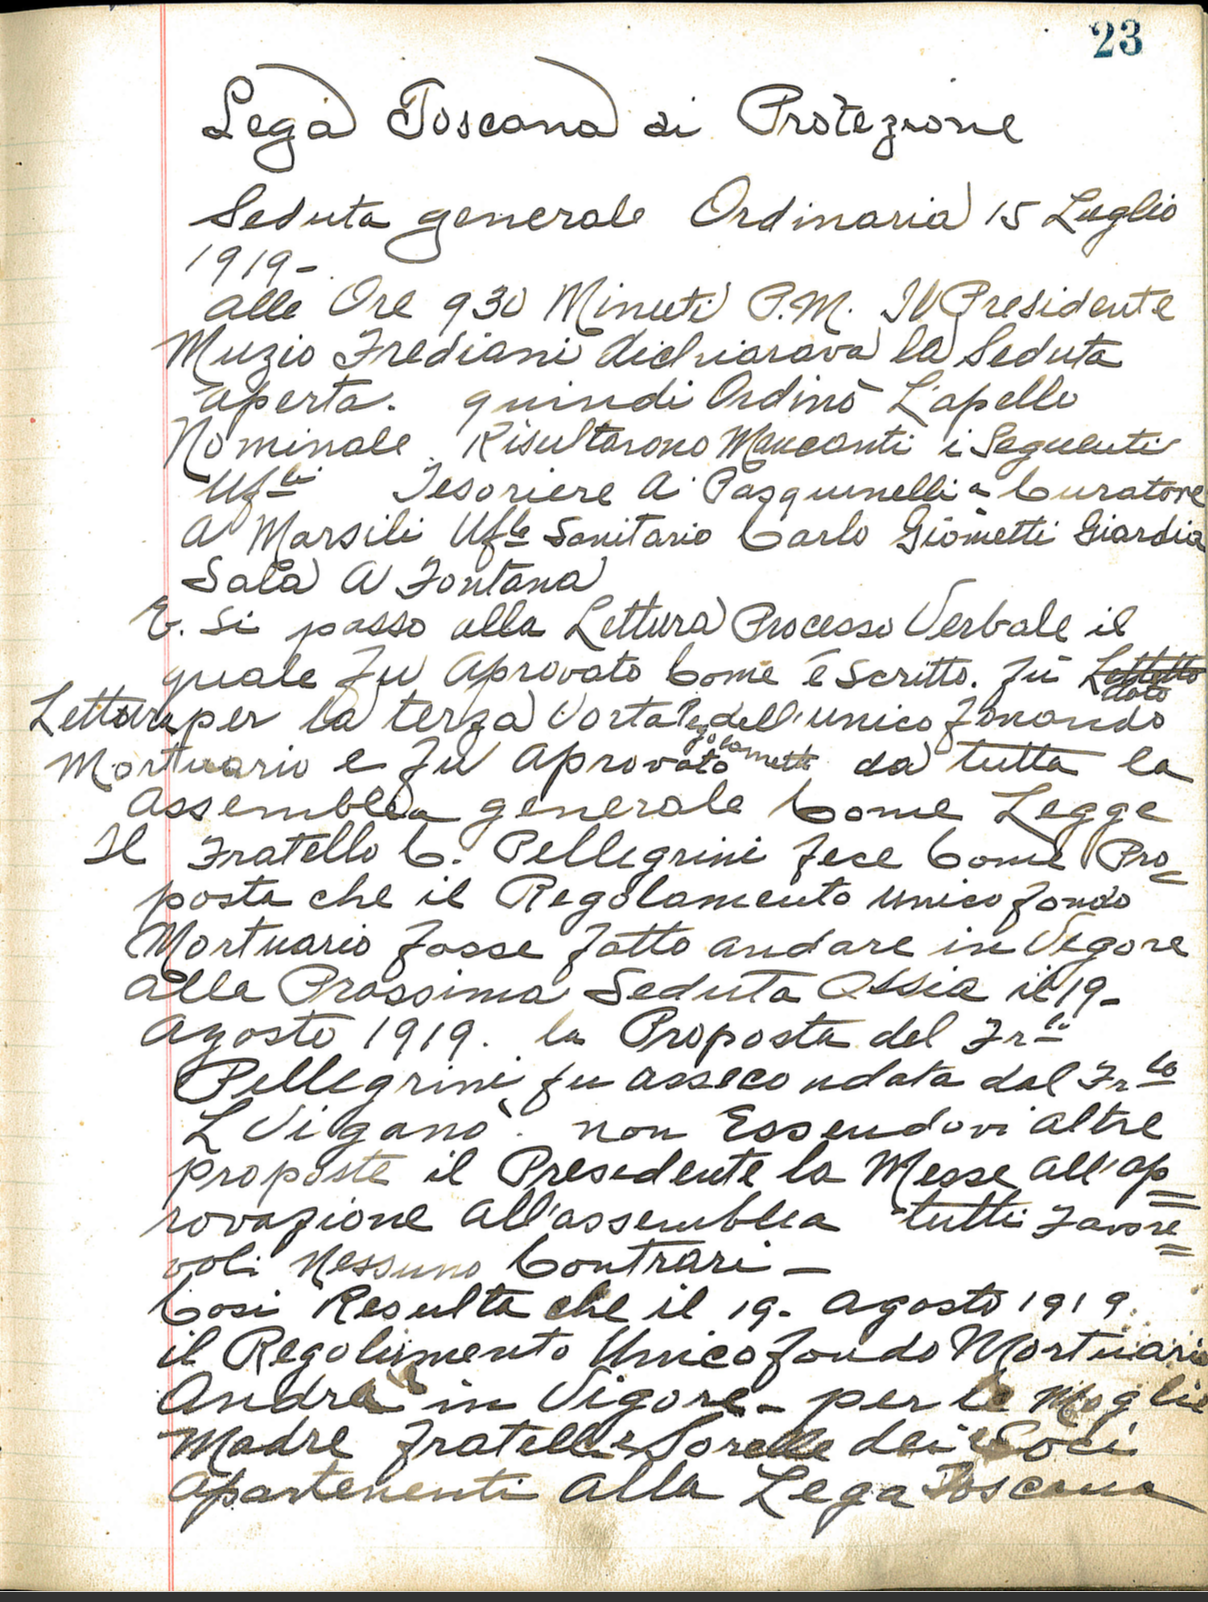 23
Lega Toscana di Protezione
Seduta generale Ordinaria 15 Luglio
1919-
alle Ore 930 Minuti P.M. Il Presidente
Muzio Frediani dichiarava la Seduta
aperta. quindi Ordinò L'apello
Nominale. Risultarono Mancanti i Seguenti
Ufli Tesoriere A. Pasquinelli - Curatore
A Marsili Ufle Sanitario Carlo Giometti Giardia
Sala A Fontana
E. Si passo alla Lettura Processo Verbale il
quale fu Aprovato Come é Scritto. fu
dato
Lettura per la terza Vorta dell'unico fonando
Regolamento
Mortuario e fu Aprovato da tutta la
Assemblea generale Come Legge
Il Fratello C. Pellegrini fece Come Pro-
posta che il Regolamento unico fondo
Mortuario fosse fatto andare in Vegore
alla Prossima Seduta Ossia il 19-
Agosto 1919. la Proposta del Frli
Pellegrini fu assecondata dal Frlo
L Viganò. non Essendovi altre
proposte il Presedente la Messe all'ap=
rovazione all'assemblea tutti Favore=
voli Nessuno Contrari -
Cosi Resulta che il 19- Agosto 1919
il Regolamento Unico fondo Mortuario
Andrà in Vigore - per le Moglie
Madre Fratelli e Sorelle dei Soci
Apartenenti alla Lega Toscana